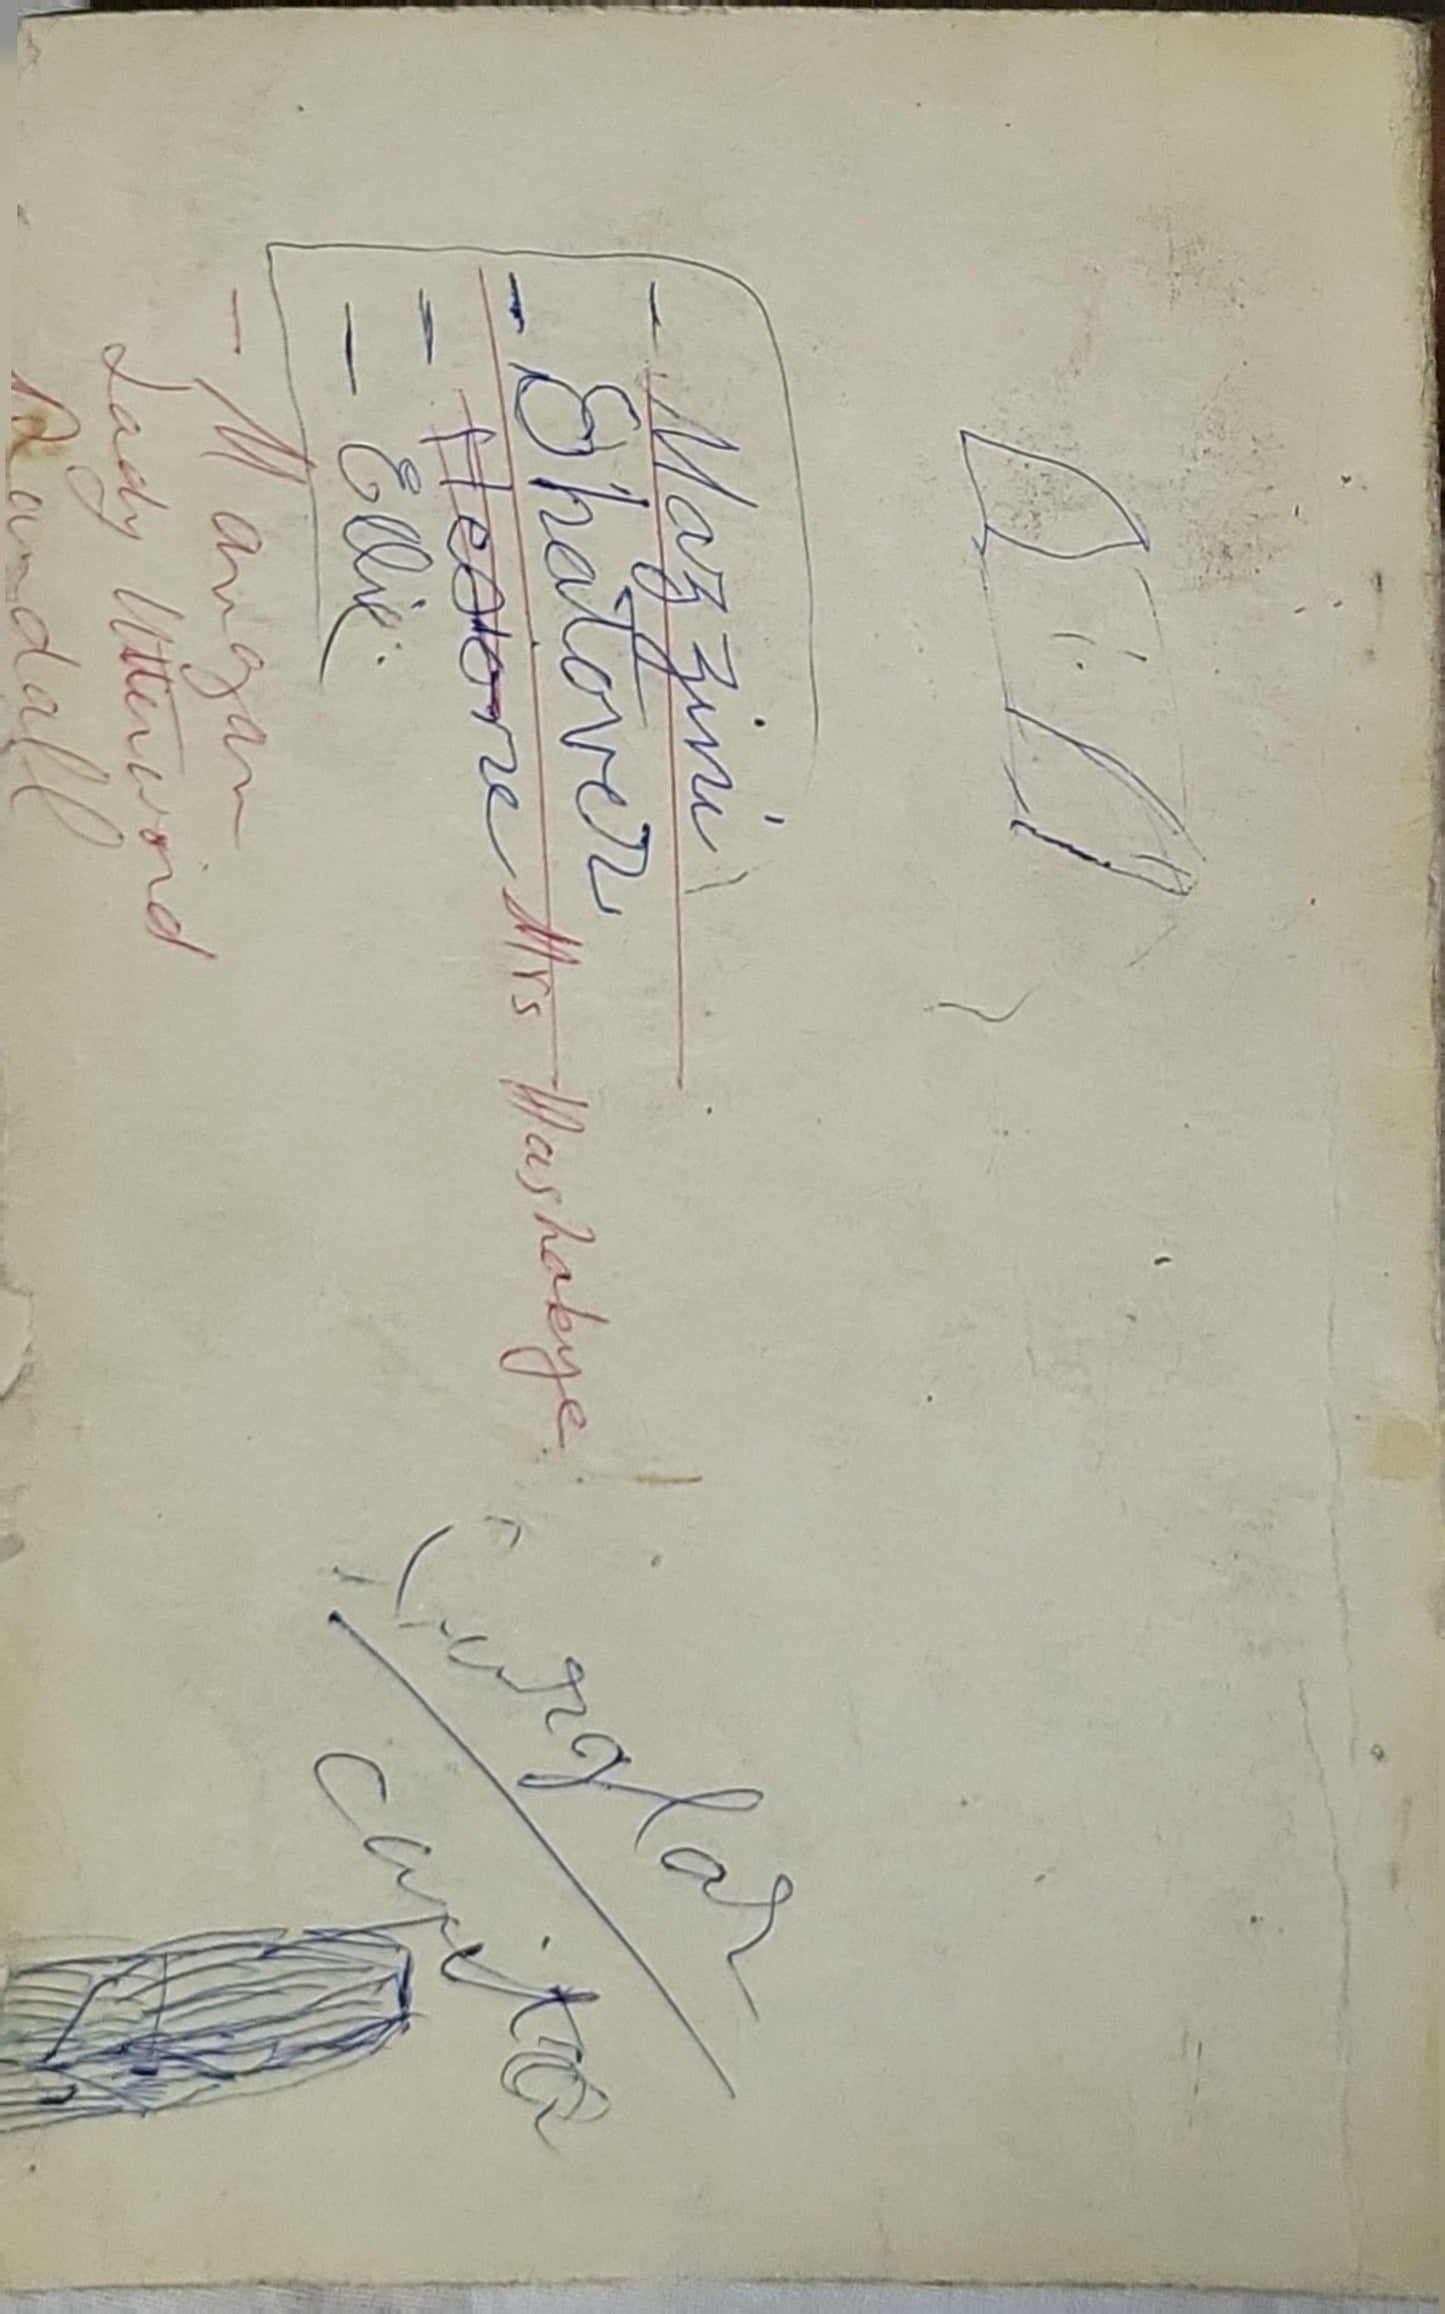 - Mazzini
- Shatover
- Hestone Mrs Hashabye
- Ellie.
- Mangan
Lady Utterword
Randall